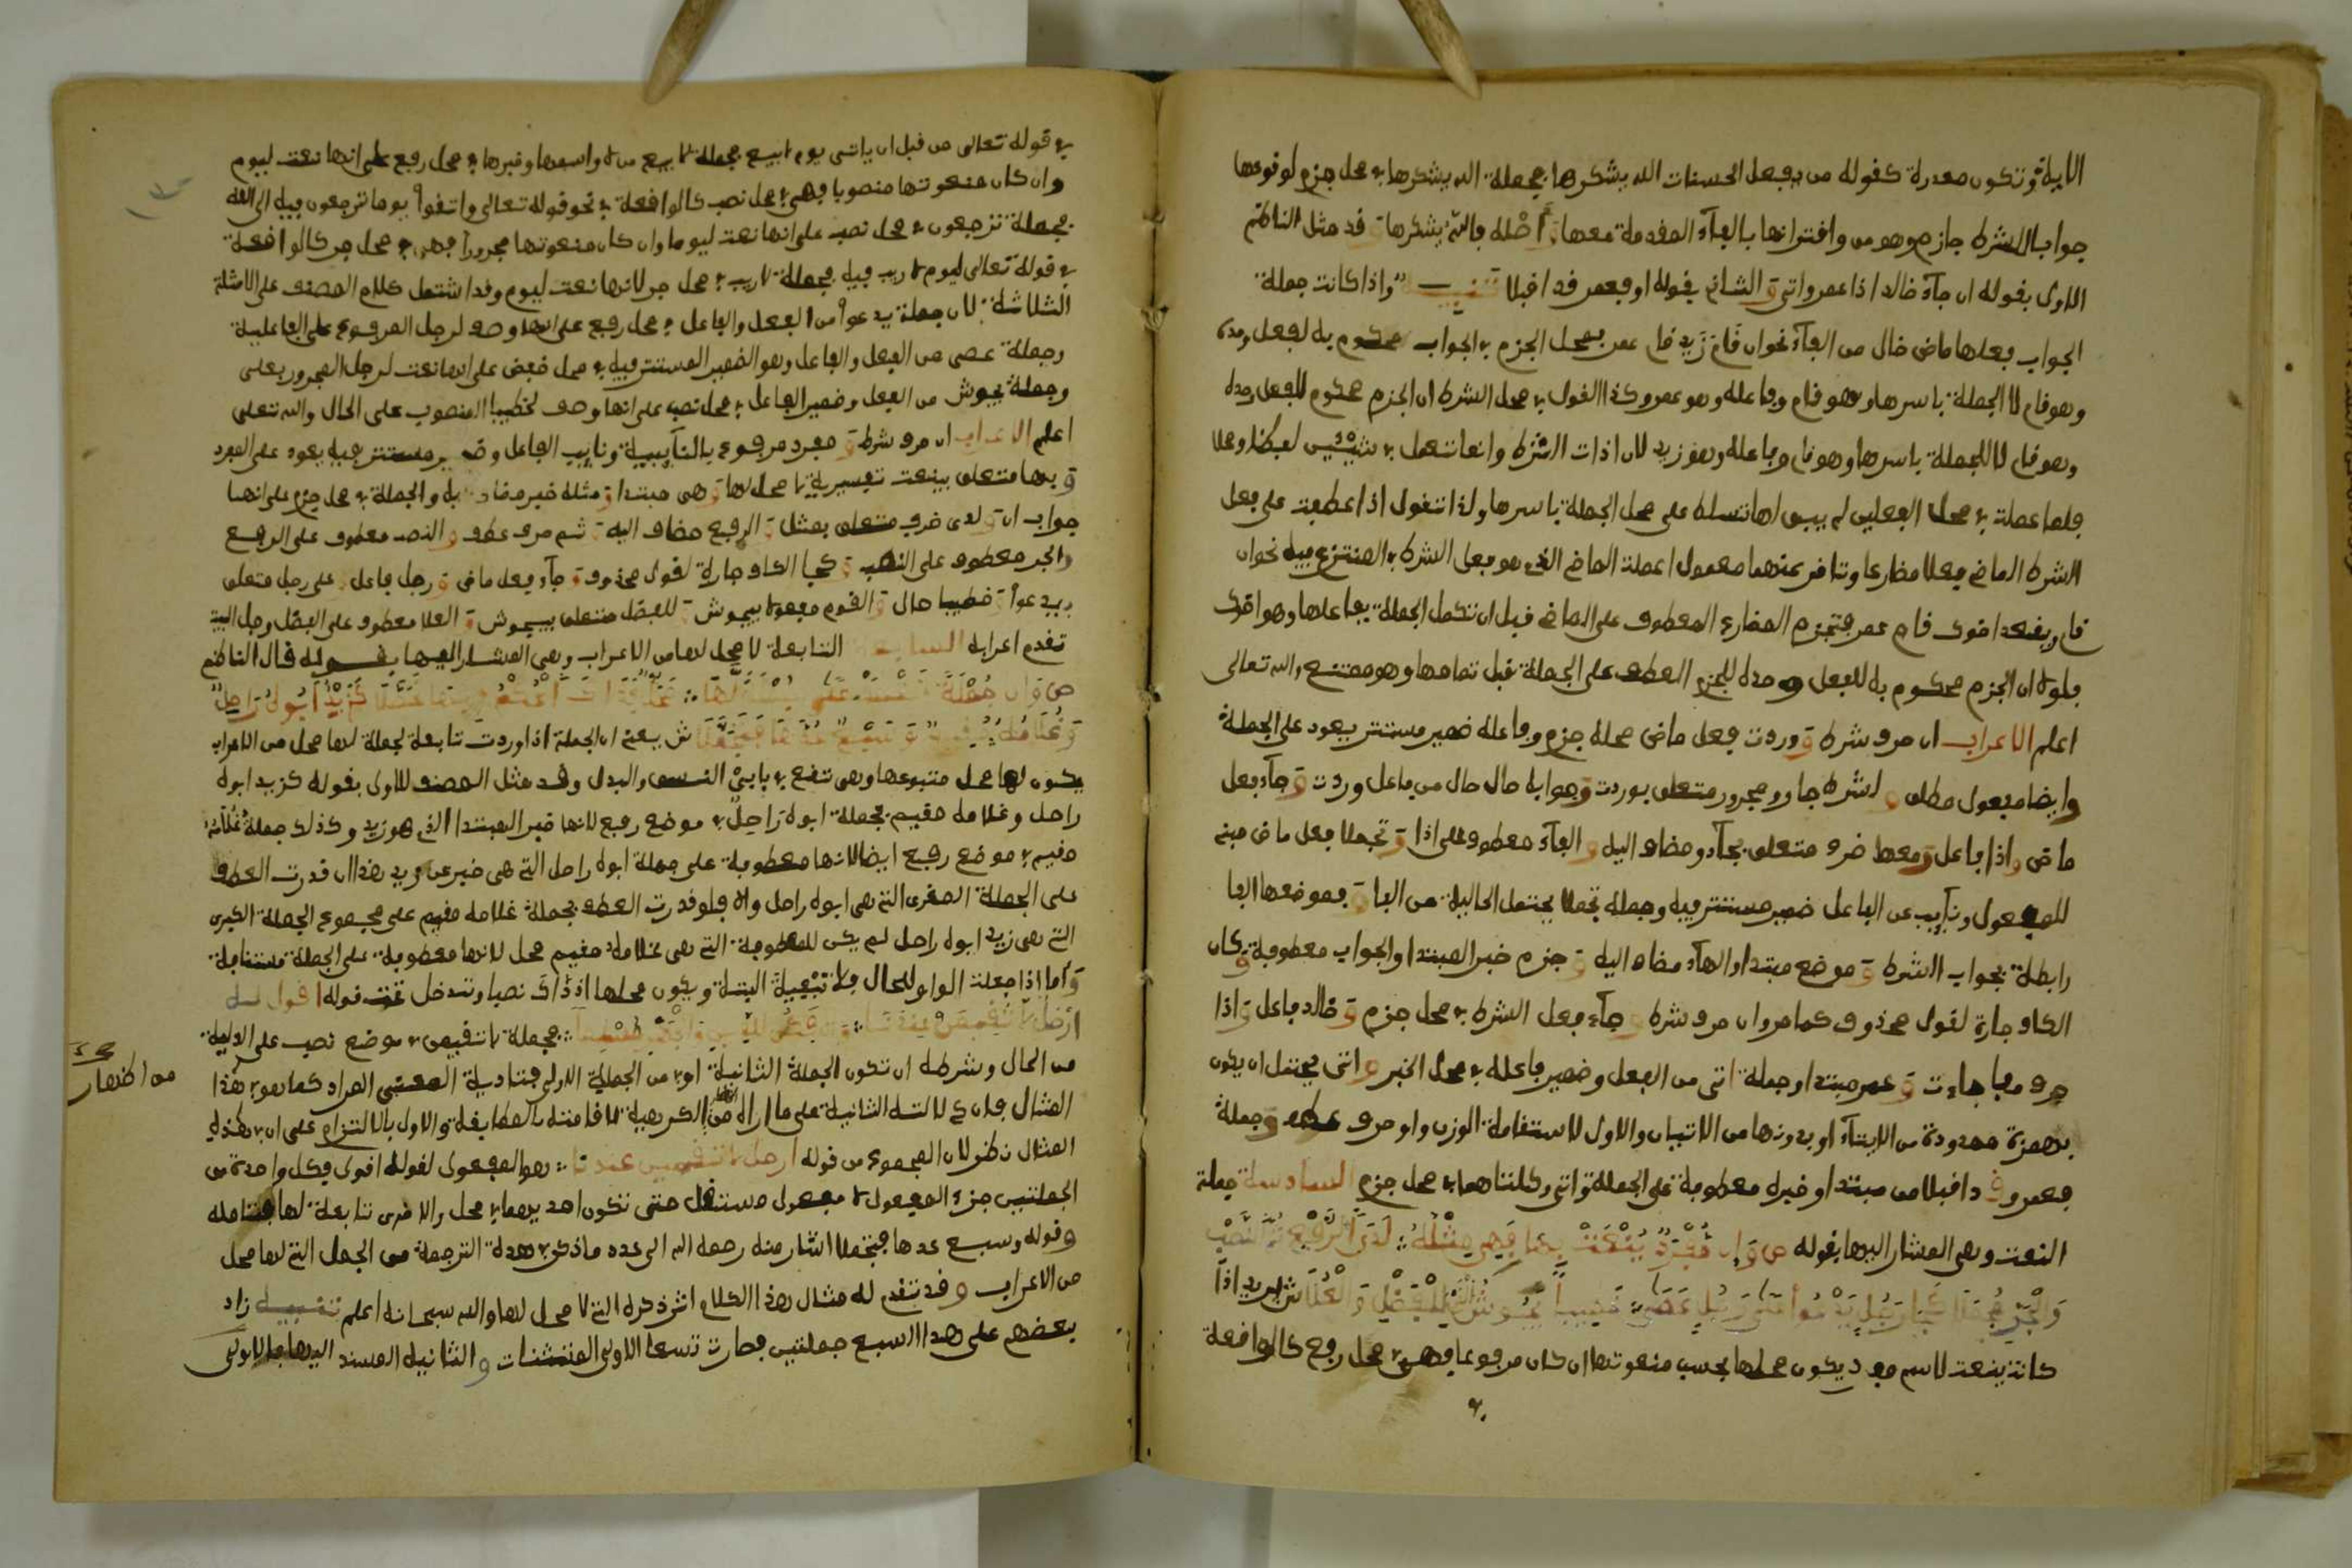 الاية وتكون مقدرة كقوله من يفعل الحسنات الله يشكرها فجملة الله يشكرها في محل جزم لوقوعها
جوابا لشرط جازم وهو من واقترانها بالفآء المقدمة معها اصله فالله يشكرها وقد مثل الناظم
الاول بقوله ان جآء خالد اذا عمرو اتى والثاني بقوله او فعمر قد اقبلا تنبيه واذا كانت جملة
الجواب فعلها ماض خال من الفآء نحو ان قام زيد قام عمر فمحل الجزم في الجواب محكوم به لفعل وحده
وهو قام لا الجملة باسرها وهو قام وفاعله وهو عمرو وكذا القول في محل الشرط ان الجزم محكوم للفعل وحده
وهو قام لا للجملة باسرها وهو قام وفاعله وهو زيد لان اداة الشرط وانما تعمل في شيئين لفظا ومحلا
فلما عملت في محل الفعلين لم يبق لها تسلط على محل الجملة باسرها ولذا تقول اذا عطفت على فعل
الشرط الماضي فعلا مضارعا وتاخر عنهما معمول اعملت الماضي الذي هو فعل الشرط في المتنزع فيه نحو ان
قام ويقعد اخوك قام عمر فتجزم المضارع المعطوف على الماضي قبل ان تكمل الجملة بفاعلها وهو اخوك
فلولا ان الجزم محكوم به للفعل وحده للجزم العطف على الجملة قبل تمامها وهو ممتنع والله تعالى
اعلم الاعراب ان حرف شرط ووردت فعل ماض محله جزم وفاعله ضمير مستتر يعود على الجملة
وايضا مفعول مطلق و لشرط جار ومجرور متعلق بوردت وجوابه حال من فاعل وردت وجآء فعل
ماض واذا فاعل ومعها ظرف متعلق بجآء ومضاف اليه والفآء معطوف على اذا وتجملا فعل ماض مبني
للمفعول ونآيب عن الفاعل ضمير مستتر فيه وجملة تجملا يحتمل الحالية من الفا وفموضعها الفا
رابطة بجواب الشرط وموضع مبتدا والهآء مضاف اليه وجزم خبر المبتدا والجواب معطوفة وكان
الكاف جارة لقول محذوف كما مر وان حرف شرط وجآء فعل الشرط في محل جزم وخالد فاعل واذا
حرف مفاجاءت وعمر مبتدا وجملة اتى من الفعل وضمير فاعله في محل الخبر واتى يحتمل ان يكون
بهمزة ممدودة من الايتآء او بدونها من الاتيان والاول لاستقامة الوزن واو حرف عطف وجملة
فعمرو قد اقبلا من مبتدا وخبره معطوفة على الجملة واتى وكلتاهما في محل جزم السادسة جملة
النعت وهي المشار اليها بقوله ص وَان مُفْرَدٌ يُنْعَتْ بِهَا فَهِيَ مِثْلُهُ لَدَى الرَّفْعِ ثُمَّ النَّصْبِ
وَالْجَرِّ مُجْمَلَا كَجَا رَجُلٌ يَدْعُوا عَلَى رَجُلٍ عَصَى خَطِيباً يَحُوشُ الْقَوْمَ لِلْفَضْلِ وَالْعُلَا ش يريد اذا
كانت ينعت لاسم مفرد يكون محلها بحسب منعوتها ان كان مرفوعا فهي في محل رفع كالواقعة
في قوله تعالى من قبل ان ياتي يوم لا بيع فجملة لا بيع من لا واسمها وخبرها في محل رفع على انها نعت ليوم
وان كان منعوتها منصوبا فهي في محل نصب كالواقعة في نحو قوله تعالى واتقوا يوما ترجعون فيه الى الله
فجملة ترجعون في محل نصب على انها نعت ليوما وان كان منعوتها مجرورا فهي في محل جر كالواقعة
في قوله تعالى ليوم لا ريب فيه فجملة لا ريب في محل جر لانها نعت ليوم وقد اشتمل كلام المصنف على الامثلة
الثلاثة لان جملة يدعوا من الفعل والفاعل في محل رفع على انها وصف لرجل المرفوع على الفاعلية
وجملة عصى من الفعل والفاعل وهو الضمير المستتر فيه في محل خفض على انها نعت لرجل المجرور بعلى
وجملة يحوش من الفعل وضمير الفاعل في محل نصب على انها وصف لخطيبا المنصوب على الحال والله تعالى
اعلم الاعراب ان حرف شرط ومفرد مرفوع بالنآيبية ونايب الفاعل وضمير مستتر فيه يعود على المفرد
وبها متعلق بينعت تفسيرية لا محل لها وهي مبتدا ومثله خبر مضاف به والجملة في محل جزم على انها
جواب ان ولدى ظرف متعلق بمثل والرفع مضاف اليه وثم حرف عطف والنصب معطوف على الرفع
والجر معطوف على النصب وكجا الكاف جارة لقول محذوف وجآء فعل ماض ورجل فاعل وعلى رجل متعلق
بيدعوا وخطيبا حال والقوم مفعول يحوش وللفضل متعلق بيحوش والعلا معطوف على الفضل وجل البيت
تقدم اعرابه السابعة التابعة لا محل لها من الاعراب وهي المشار اليها بقوله قال الناظم
وَغُلَامُهُ مُقِيمٌ ش يعني ان الجملة اذا وردت تابعة لجملة لها محل من الاعراب
يكون لها محل متبوعها وهي تقع في بابي النسق والبدل وقد مثل المصنف للاول بقوله كزيد ابوه
راحل وغلامه مقيم فجملة ابوه راحل في موضع رفع لانها خبر المبتدا الذي هو زيد وكذلك جملة غلامه
مقيم في موضع رفع ايضا لانها معطوفة على جملة ابوه راحل التي هي خبر عن زيد هذا ان قدرت العطف
على الجملة الصغرى التي هي ابوه راحل والا فلو قدرت العطف بجملة غلامه مقيم على مجموع الجملة الكبرى
التي هي زيد ابوه راحل لم يكن للمعطوفة التي هي غلامه مقيم محل لانها معطوفة على الجملة مستانفة
واما اذا جعلت الواو للحال فلا تبعية البتة ويكون محلها اذ ذاك نصبا وتدخل تحت قوله اقول له
ارحل لا تقيمن عندنا فجملة لا تقيمن في موضع نصب على البدلية
من الحال وشرطه ان تكون الجملة الثانية اوفى من الجملة الاولى بتادية المعنى المراد كما هو في هذا
المثال فان دلالته الثانية على ما اراده من اظهار الكرهية لاقامته بالمطابقة والاول بالالتزام على ان في هذا
المثال نظر لان المجموع من قوله ارحل لا تقيمن عندنا هو المفعول لقوله اقول فكل واحدة من
الجملتين جزء المفعول لا مفعول مستقل حتى تكون احديهما في محل والاخرى تابعة لها فتامله
وقوله وسبع عدها فتجملا اشار منه رحمه الله الى عدد ما ذكر في هذه الترجمة من الجمل التي لها محل
من الاعراب وقد تقدم له مثال هذا الكلام اثر ذكره التي لا محل لها والله سبحانه اعلم تنبيه زاد
بعضهم على هذا السبع جملتين فصارت تسعا الاولى المستثنات والثانية المسند اليها فالاولى
من اظهار